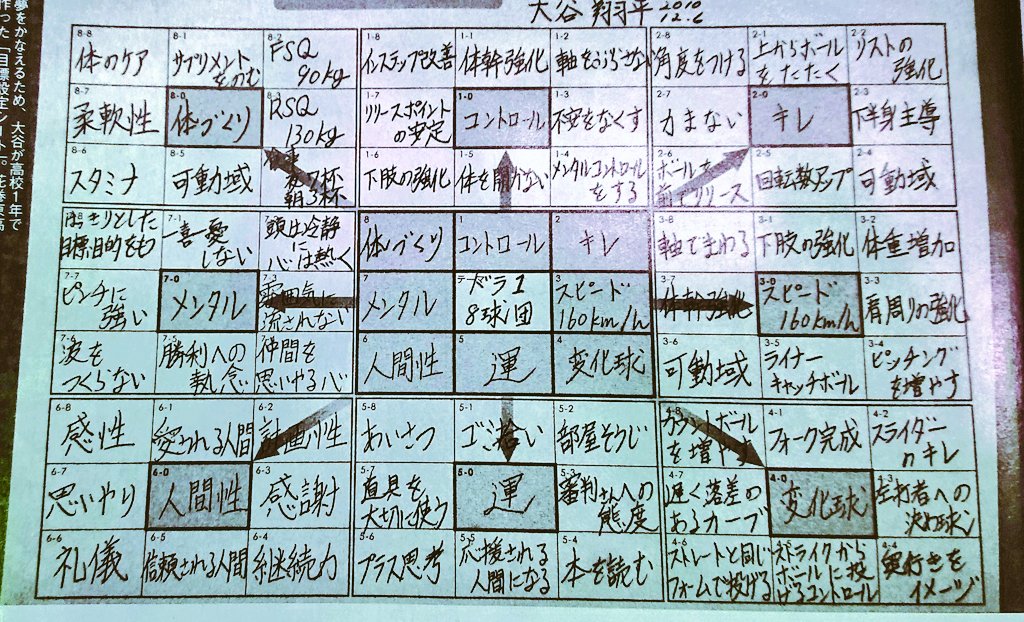 大谷 翔平 2010
12.6
夢をかなえるため、大谷が高校1年で
作った「目標設定シート」。花巻東高
8-8
体のケア
8-1
サプリメント
をのむ
8-2
FSQ
90kg
8-7
柔軟性
8-0
体づくり
8-3
RSQ
130kg
8-6
スタミナ
8-5
可動域
食事
夜7杯
朝3杯
1-8
インステップ改善
1-1
体幹強化
1-2
軸をぶらさない
1-7
リリースポイント
の安定
1-0
コントロール
1-3
不安をなくす
1-6
下肢の強化
1-5
体を開かない
1-4
メンタルコントロール
をする
2-8
角度をつける
2-1
上からボール
をたたく
2-2
リストの
強化
2-7
力まない
2-0
キレ
下半身主導
2-6
ボールを
前でリリース
2-5
回転数アップ
2-4
可動域
はっきりとした
目標目的をもつ
7-1
一喜一愛
しない
頭は冷静に
心は熱く
7-7
ピンチに
強い
7-0
メンタル
7-3
雰囲気に
流されない
波を
つくらない
勝利への
執念
仲間を
思いやる心
8
体づくり
1
コントロール
2
キレ
7
メンタル
ドラ1
8球団
3
スピード
160km/h
6
人間性
5
運
4
変化球
3-8
軸でまわる
3-1
下肢の強化
3-2
体重増加
3-7
体幹強化
3-0
スピード
160km/h
3-3
肩周りの強化
3-6
可動域
3-5
ライナー
キャッチボール
3-4
ピッチング
を増やす
6-8
感性
6-1
愛される人間
6-2
計画性
6-7
思いやり
6-0
人間性
6-3
感謝
6-6
礼儀
6-5
信頼される人間
6-4
継続力
5-8
あいさつ
5-1
ゴミ拾い
5-2
部屋そうじ
5-7
道具を
大切に使う
5-0
運
5-3
審判さんへの
態度
5-6
プラス思考
5-5
応援される
人間になる
5-4
本を読む
4-8
カウントボール
を増やす
4-1
フォーク完成
4-2
スライダー
のキレ
4-7
遅く落差の
あるカーブ
4-0
変化球
4-3
左打者への
決め球
4-6
ストレートと同じ
フォームで投げる
ストライクから
ボールに投
げるコントロール
4-4
奥行きを
イメージ